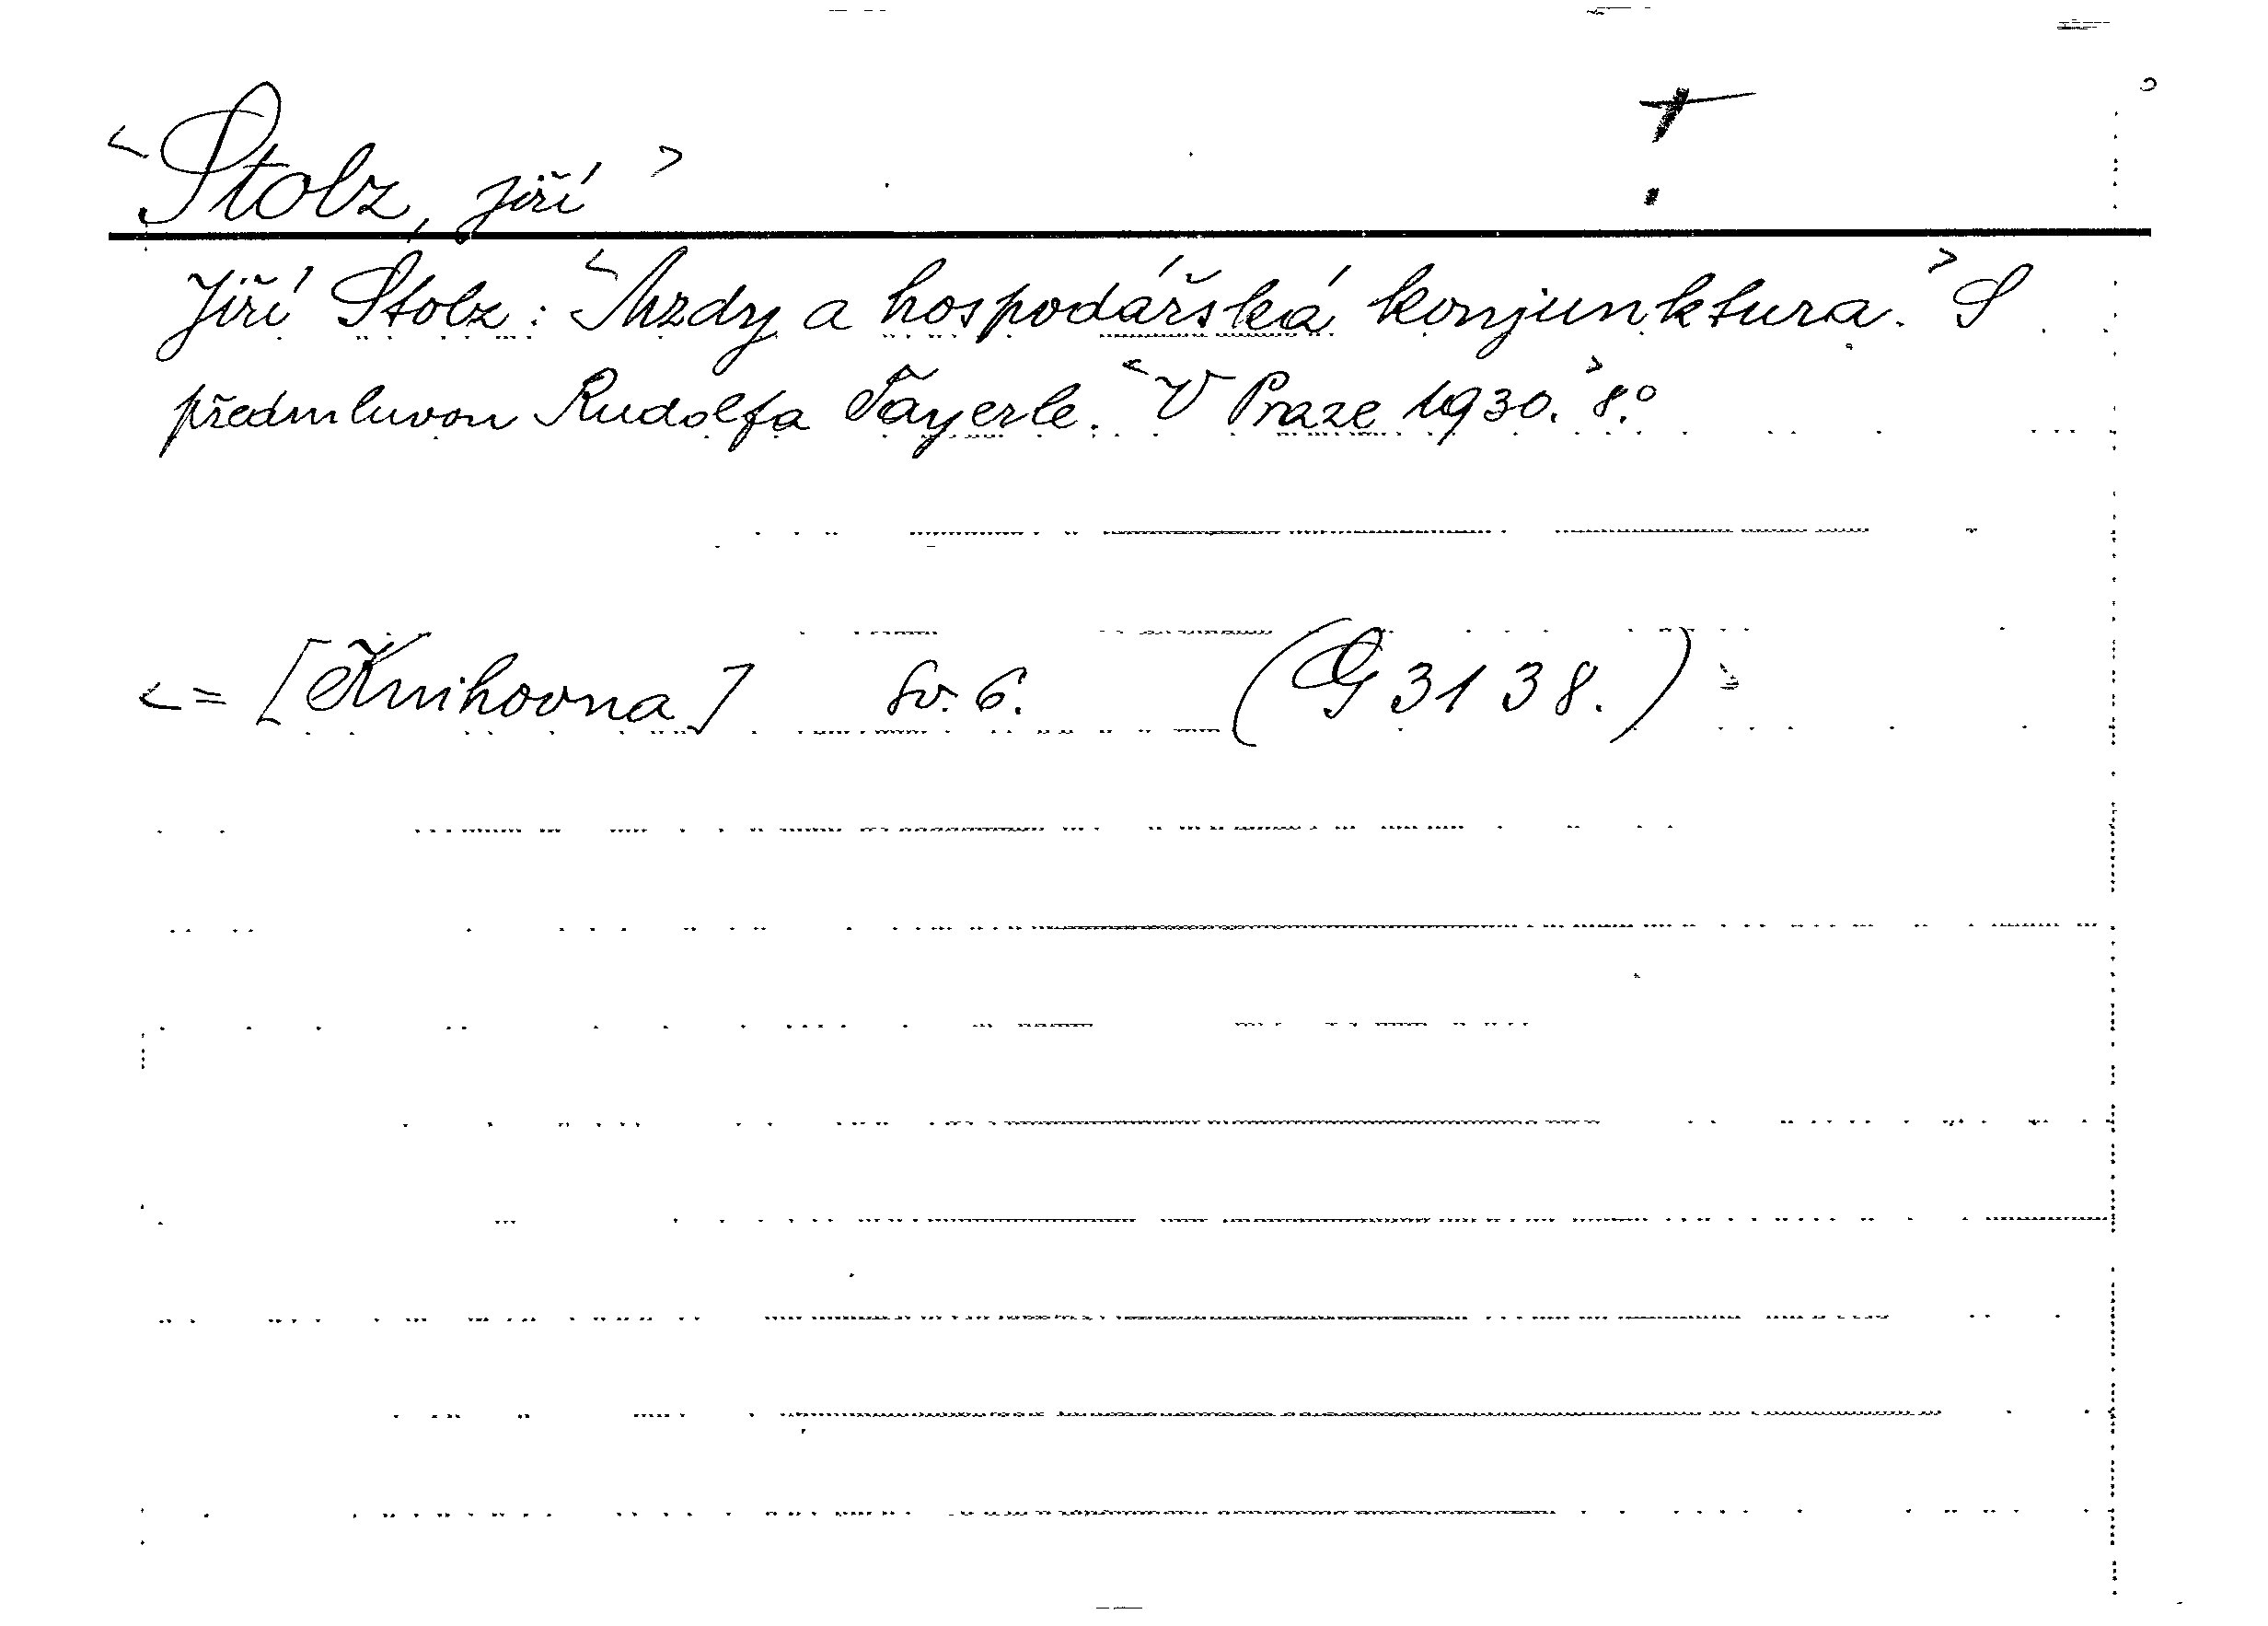 <Stolz, Jiří>
Jiří Stolz: <Mzdy a hospodářská konjunktura.> S
předmluvou Rudolfa Tayerle. <V Praze 1930.> 8.°
<= [Knihovna] Sv. 6. (G 3138.)>